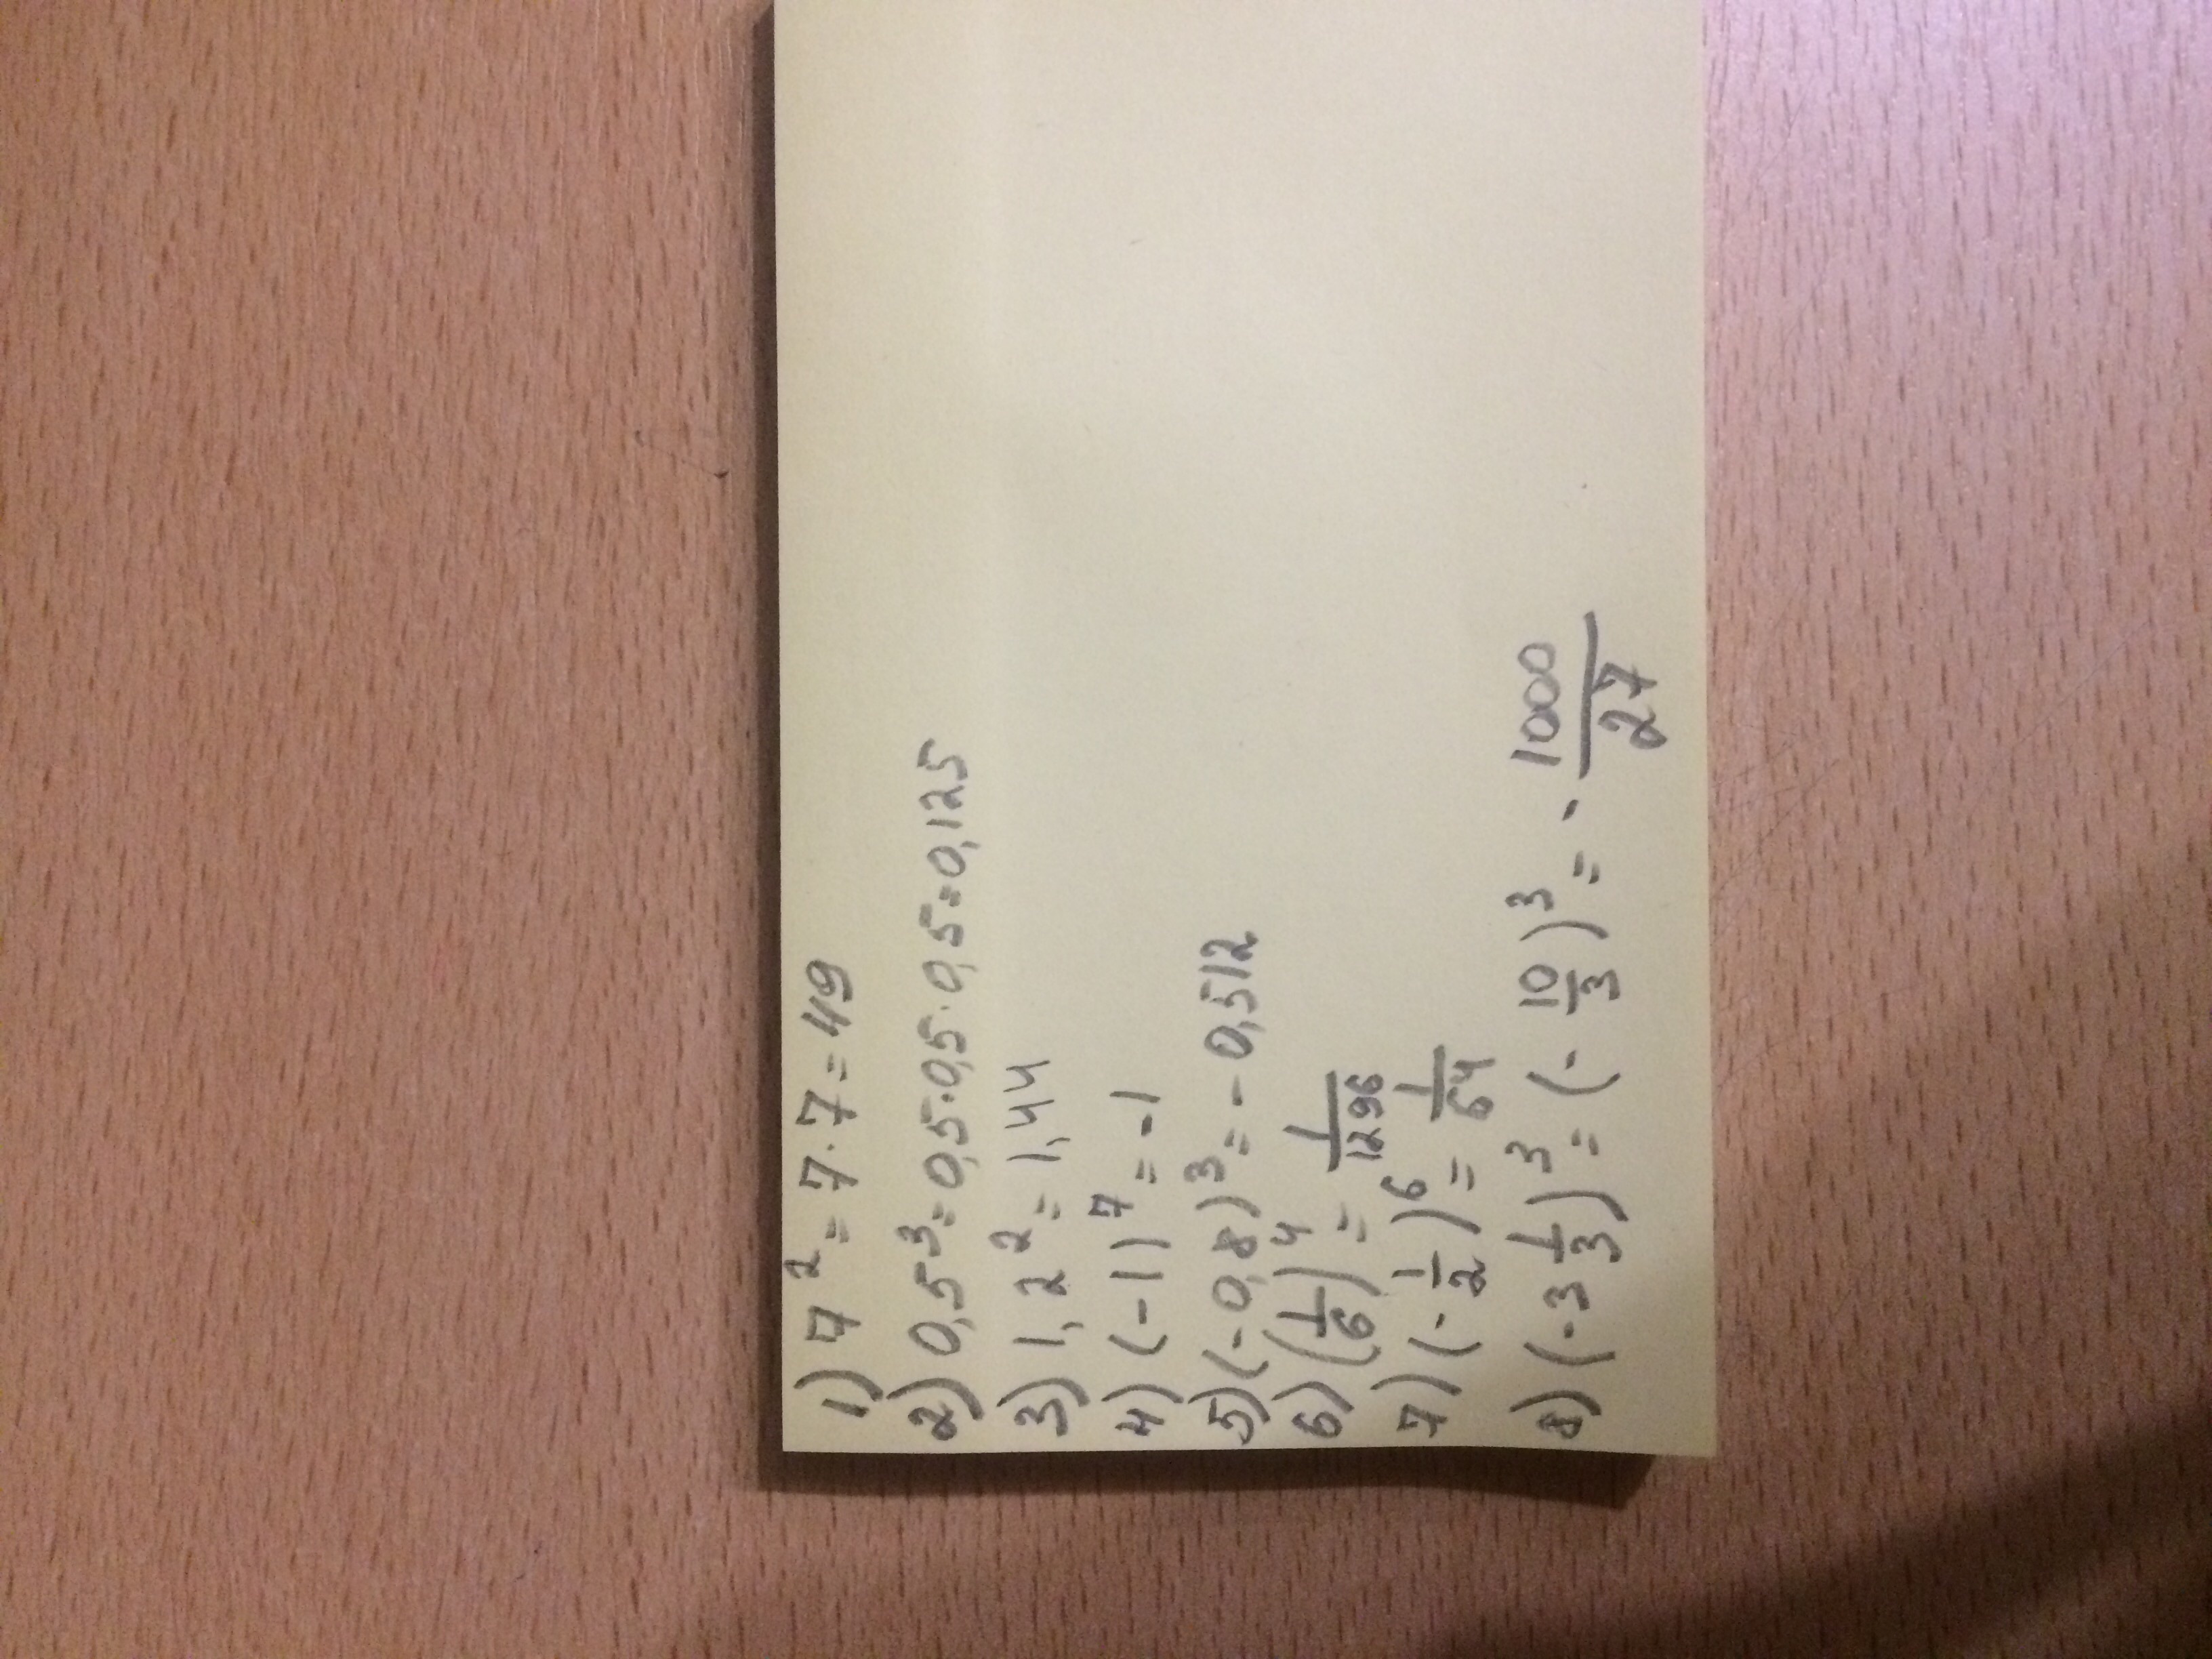 1) 7² = 7 · 7 = 49
2) 0,5³ = 0,5 · 0,5 · 0,5 = 0,125
3) 1,2² = 1,44
4) (-1)⁷ = -1
5) (-0,8)³ = -0,512
6) (1/6)⁴ = 1/1296
7) (-1/2)⁶ = 1/64
8) (-3 1/3)³ = (-10/3)³ = -1000/27